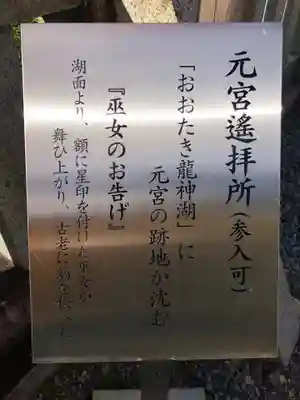 元宮遙拝所(参入可)
「おおたき龍神湖」に
元宮の跡地が沈む
『巫女のお告げ』
湖面より、額に星印を付けた巫女が
舞ひ上がり、古老に